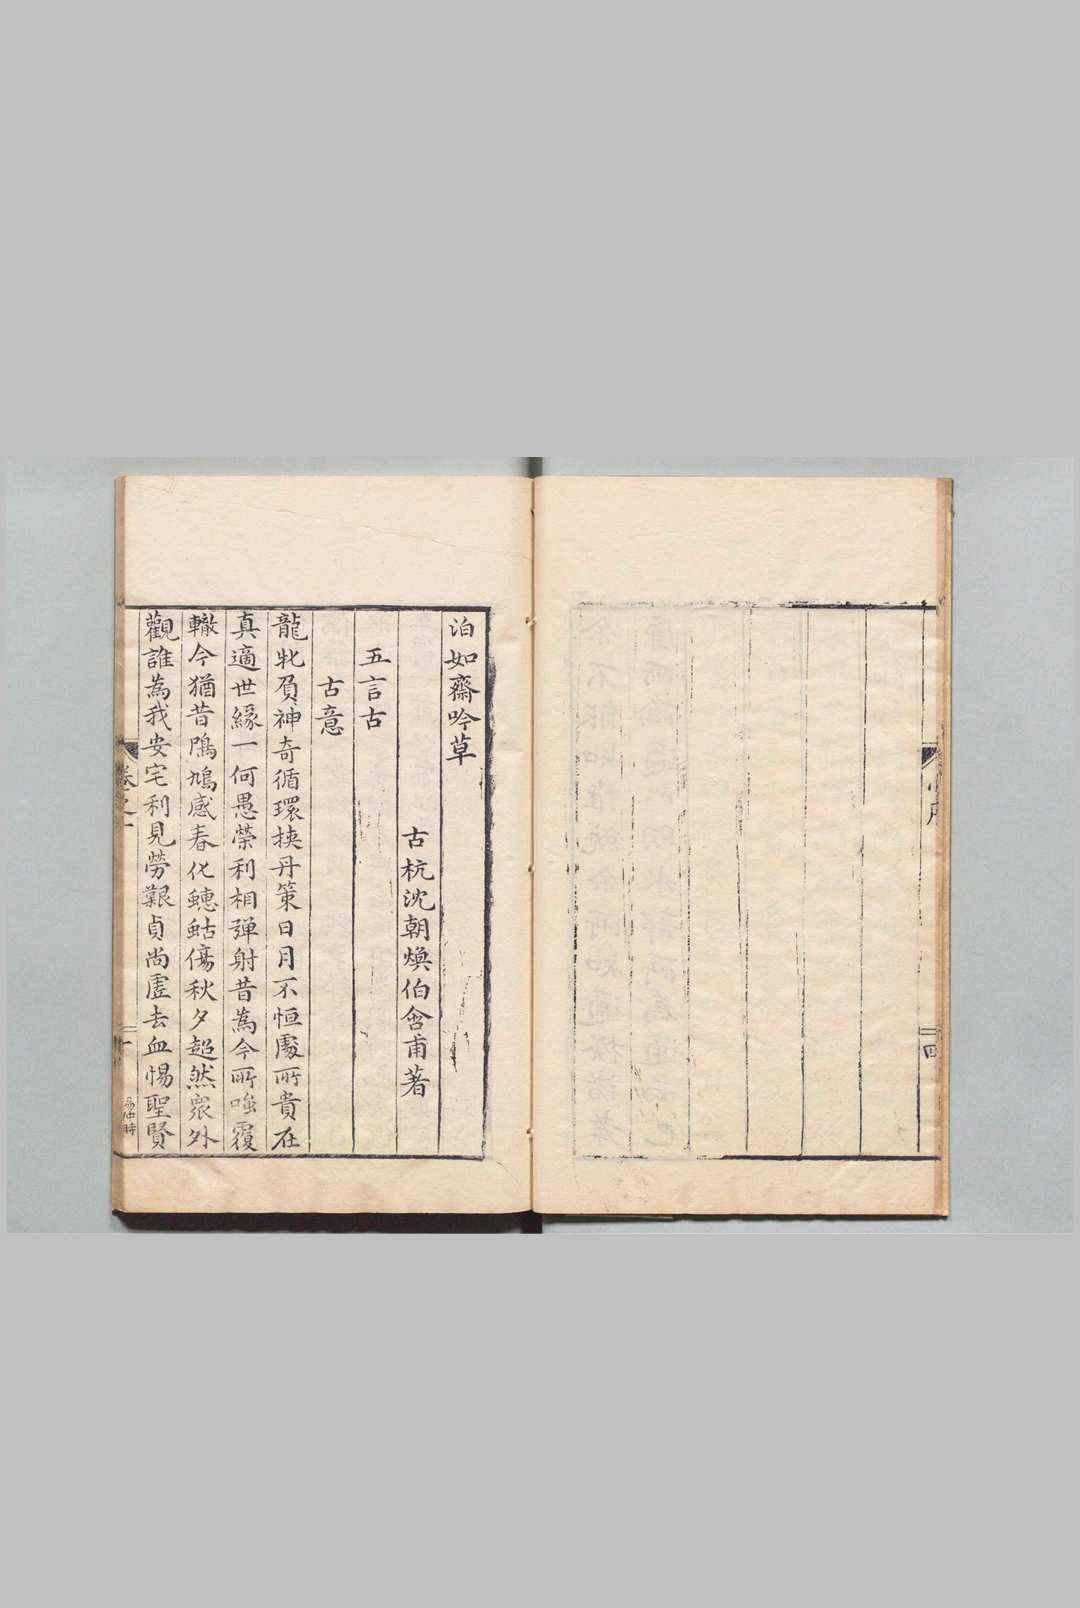 泊如齋吟草
古杭沈朝煥伯含甫著
五言古
古意
龍牝夙神奇循環挾丹策日月不恒處所貴在
真適世緣一何愚榮利相彈射昔為今所嗤覆
轍今猶昔鳲鳩感春化蟪蛄傷秋夕超然衆外
觀誰為我安宅利見勞艱貞尚虛去血惕聖賢
卷之一
一
四